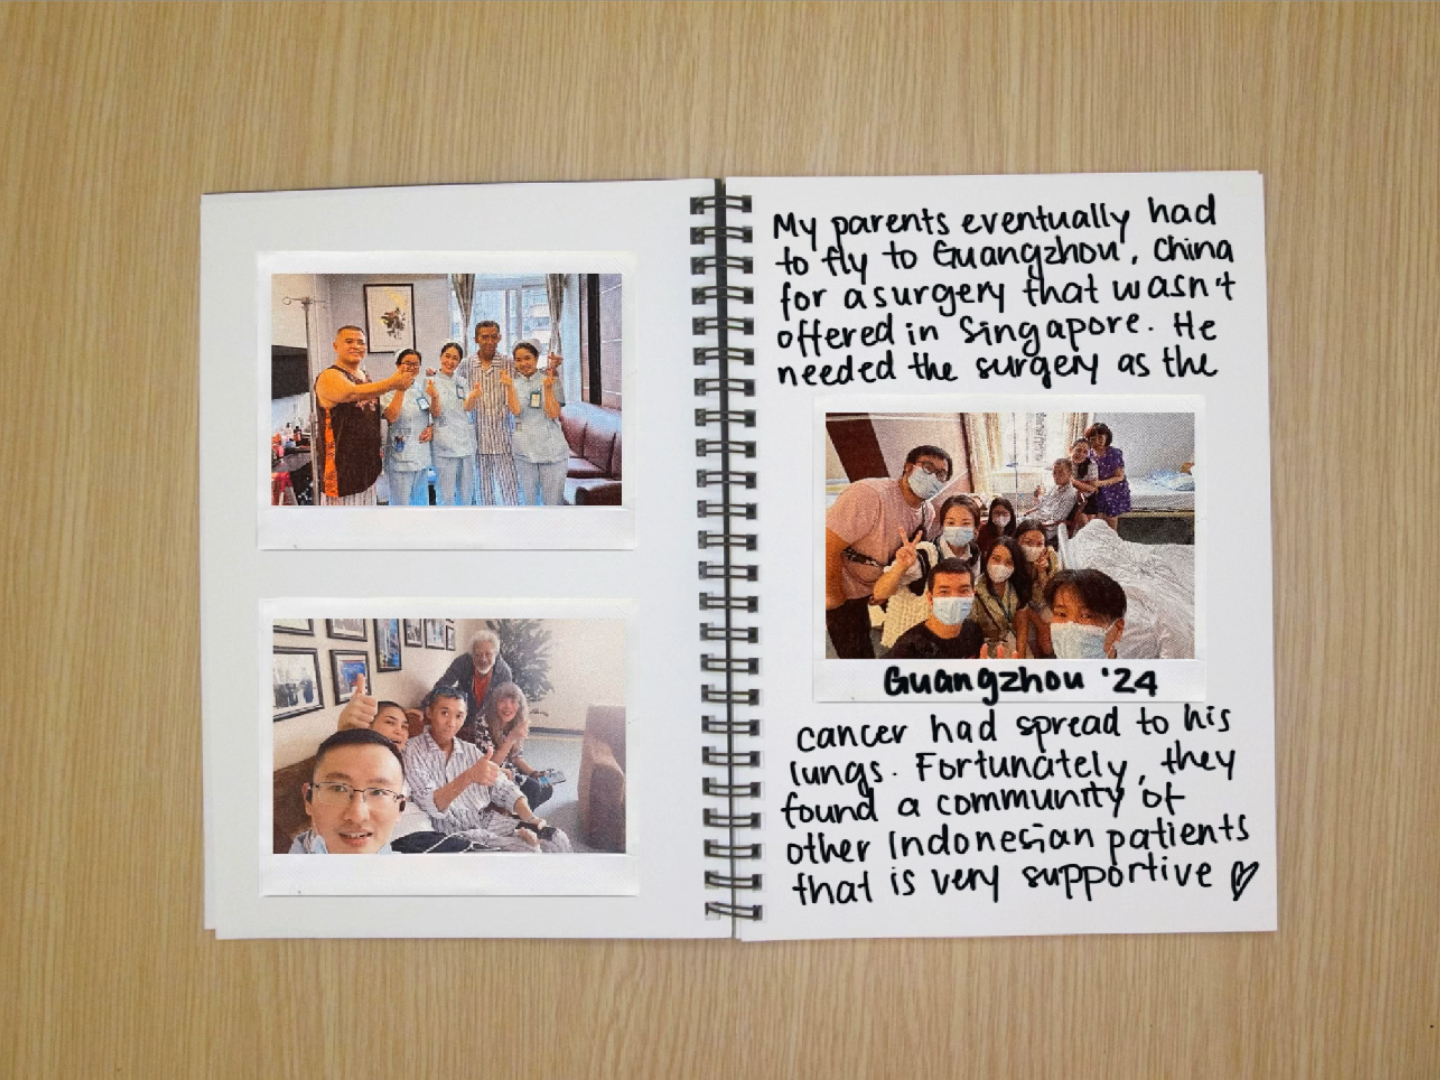 My parents eventually had
to fly to Guangzhou, China
for a surgery that wasn't
offered in Singapore. He
needed the surgery as the
Guangzhou '24
cancer had spread to his
lungs. Fortunately, they
found a community of
other Indonesian patients
that is very supportive